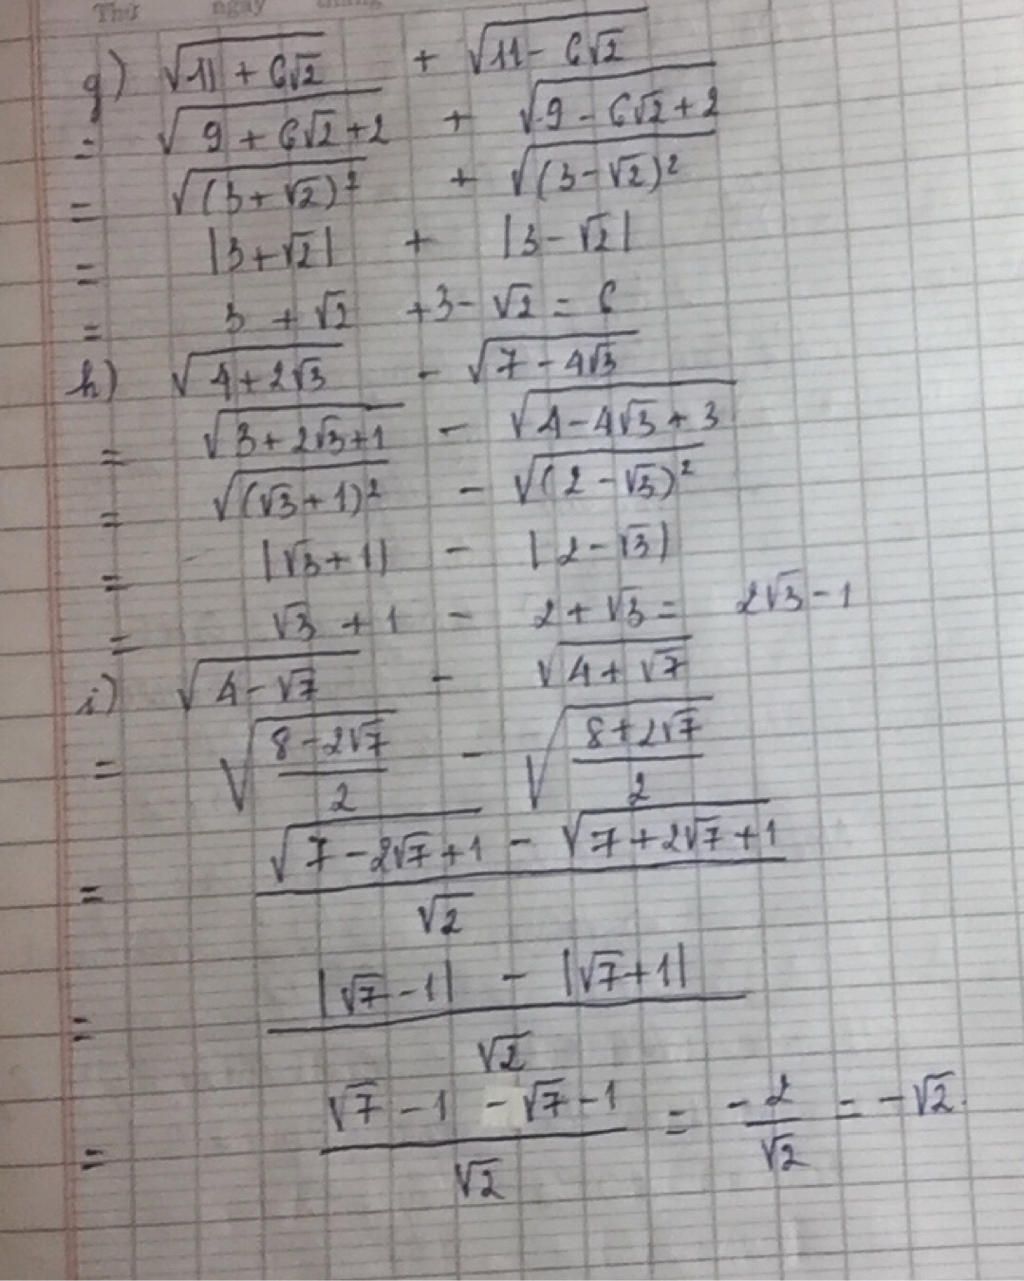 Thứ ngày tháng
g) √(11 + 6√2) + √(11 - 6√2)
= √(9 + 6√2 + 2) + √(9 - 6√2 + 2)
= √((3 + √2)²) + √((3 - √2)²)
= |3 + √2| + |3 - √2|
= 3 + √2 + 3 - √2 = 6
h) √(4 + 2√3) - √(7 - 4√3)
= √(3 + 2√3 + 1) - √(4 - 4√3 + 3)
= √((√3 + 1)²) - √((2 - √3)²)
= |√3 + 1| - |2 - √3|
= √3 + 1 - 2 + √3 = 2√3 - 1
i) √(4 - √7) - √(4 + √7)
= √((8 - 2√7)/2) - √((8 + 2√7)/2)
= (√(7 - 2√7 + 1) - √(7 + 2√7 + 1))/√2
= (|√7 - 1| - |√7 + 1|)/√2
= (√7 - 1 - √7 - 1)/√2 = -2/√2 = -√2.